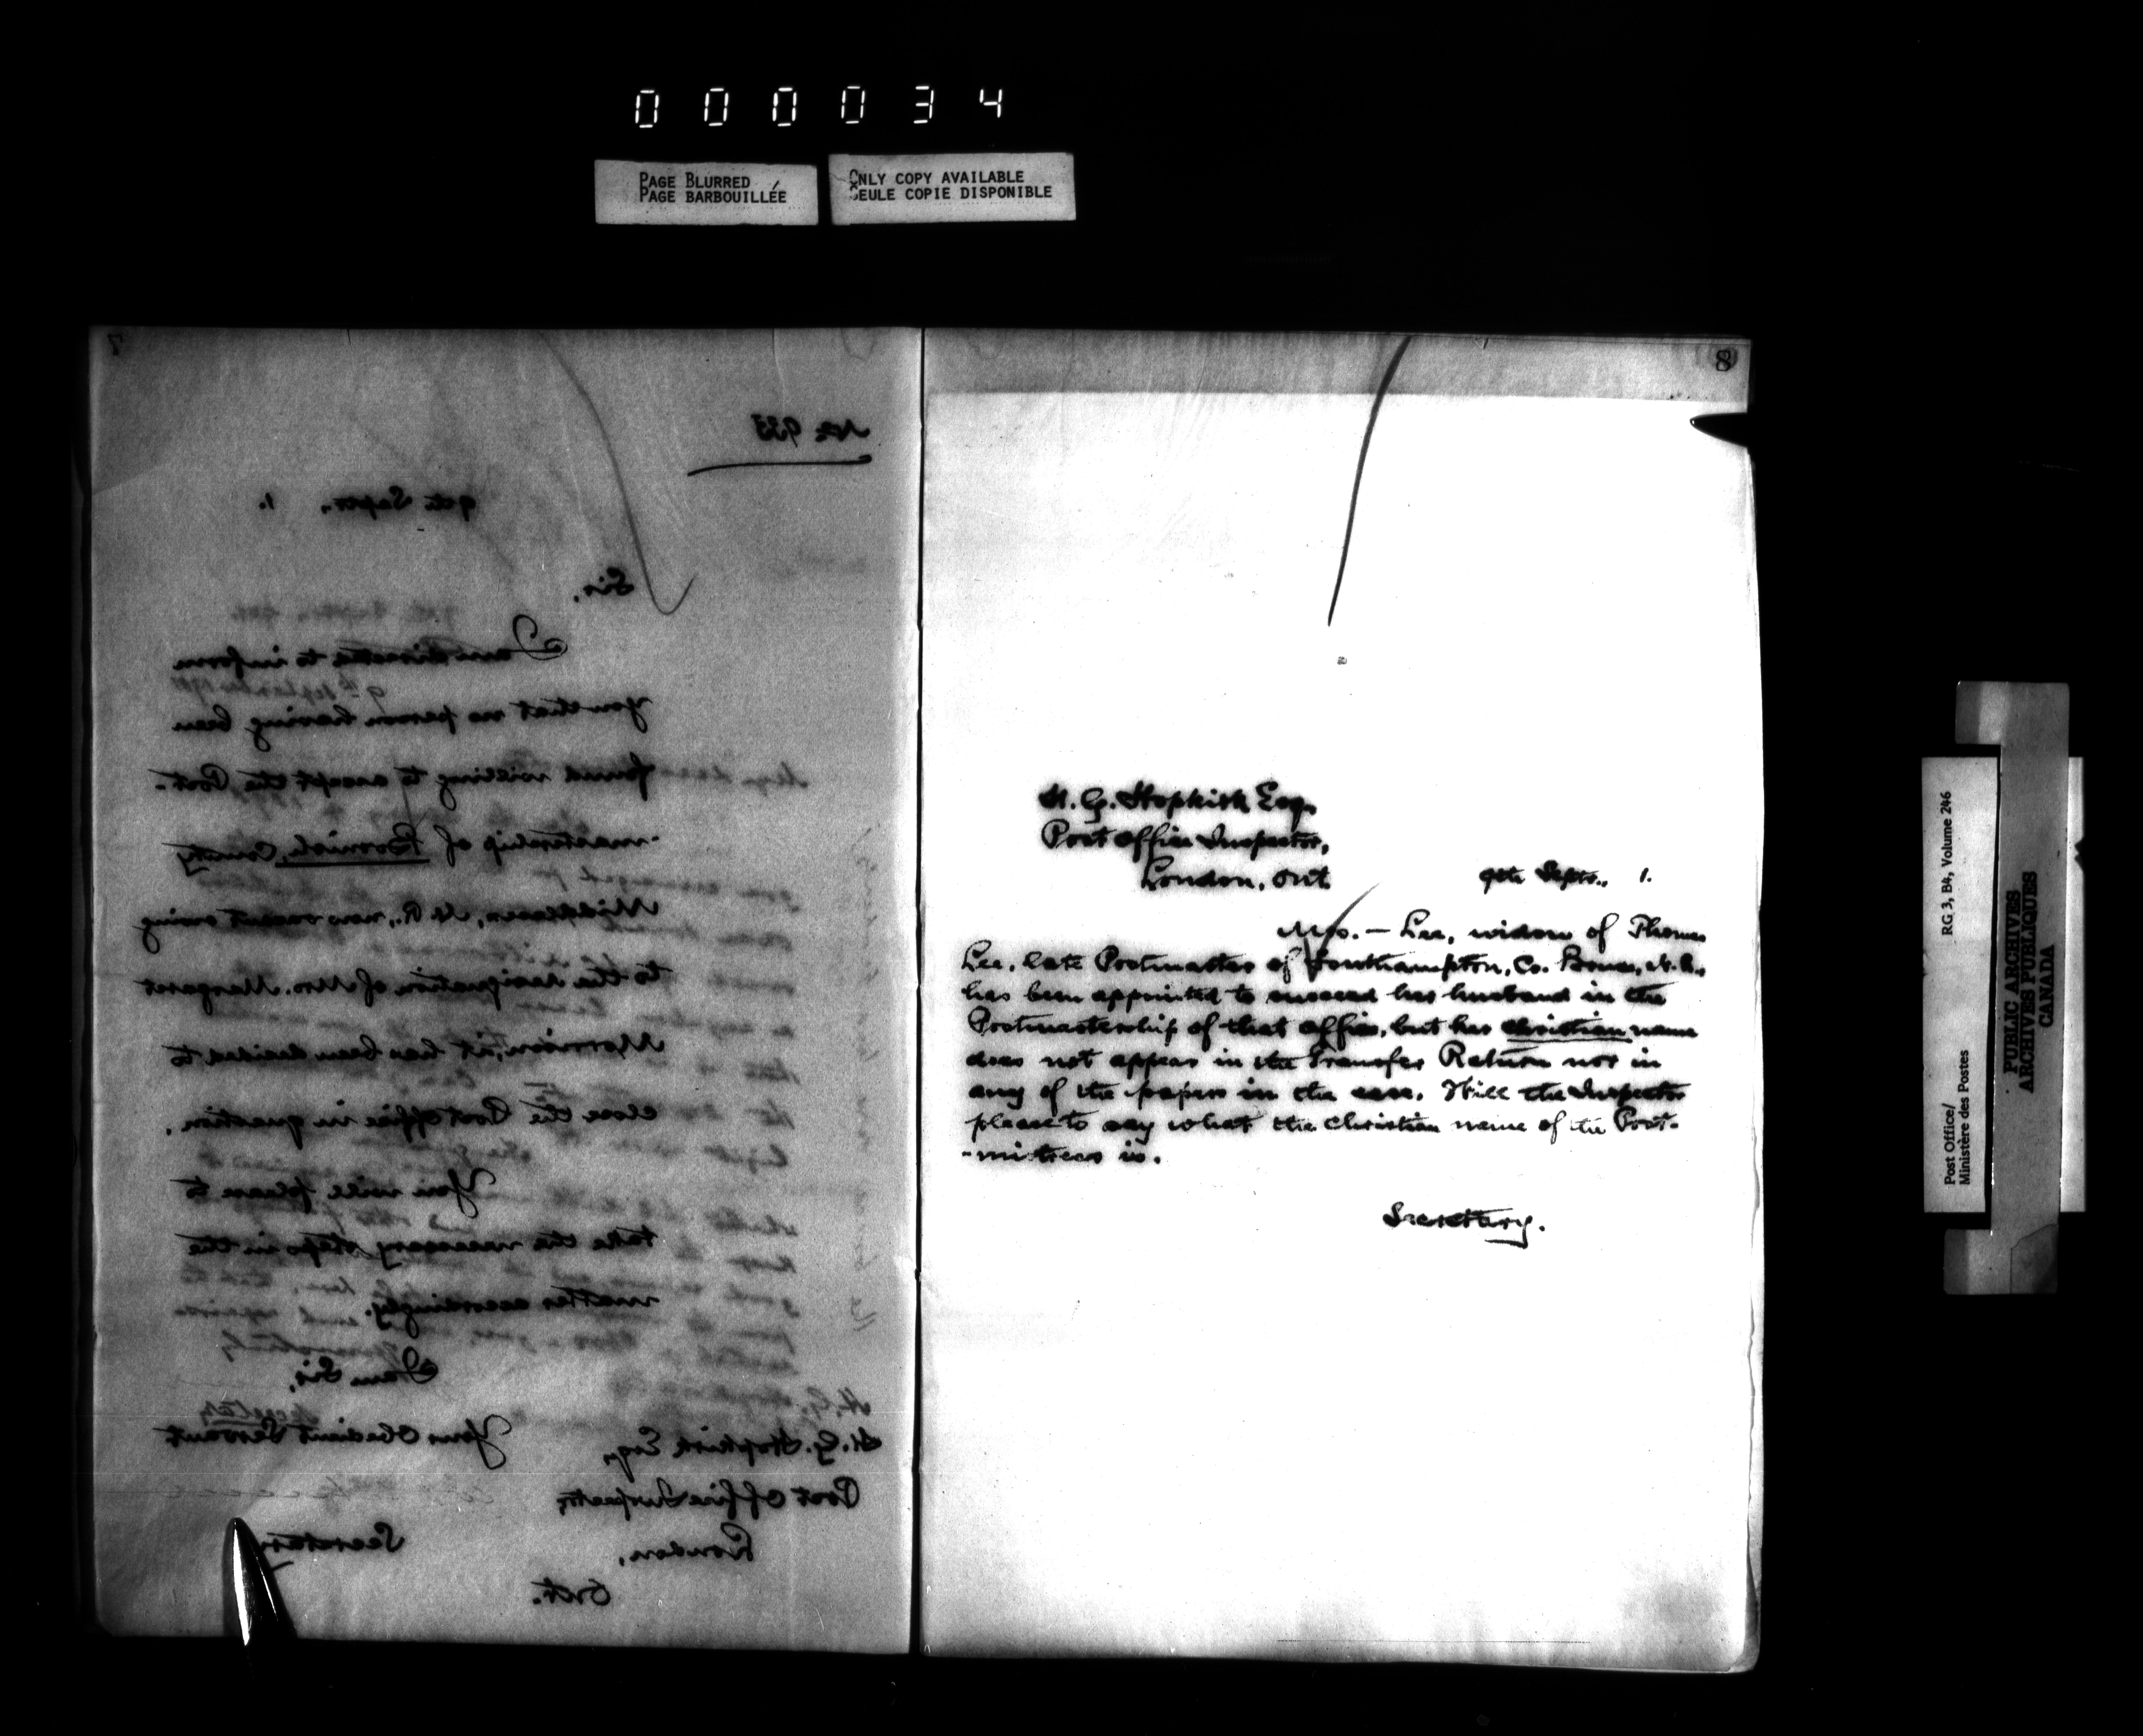 000034
PAGE BLURRED
PAGE BARBOUILLÉE
ONLY COPY AVAILABLE
SEULE COPIE DISPONIBLE
7
No 933
9th Septr. 1.
Sir,
I am directed to inform
you that no person having been
found willing to accept the Post-
-mastership of Bornish, County
Middlesex, N. R., now vacant owing
to the resignation of Mrs. Margaret
Morrison, it has been decided to
close the Post Office in question.
You will please to
take the necessary steps in the
matter accordingly.
I am Sir,
Your Obedient Servant
H. G. Hopkirk Esq,
Post Office Inspector,
Secretary
London,
Ont.
8
H. G. Hopkirk Esq.
Post Office Inspector,
London, Ont
9th Septr., 1.
Mrs. — Lee, widow of Thomas
Lee, late Postmaster of Southampton, Co. Bruce, N. R.,
has been appointed to succeed her husband in the
Postmastership of that office, but her Christian name
does not appear in the Transfer Return nor in
any of the papers in the case. Will the Inspector
please to say what the Christian name of the Post-
-mistress is.
Secretary.
Post Office/
Ministère des Postes
RG 3, B4, Volume 246
PUBLIC ARCHIVES
ARCHIVES PUBLIQUES
CANADA